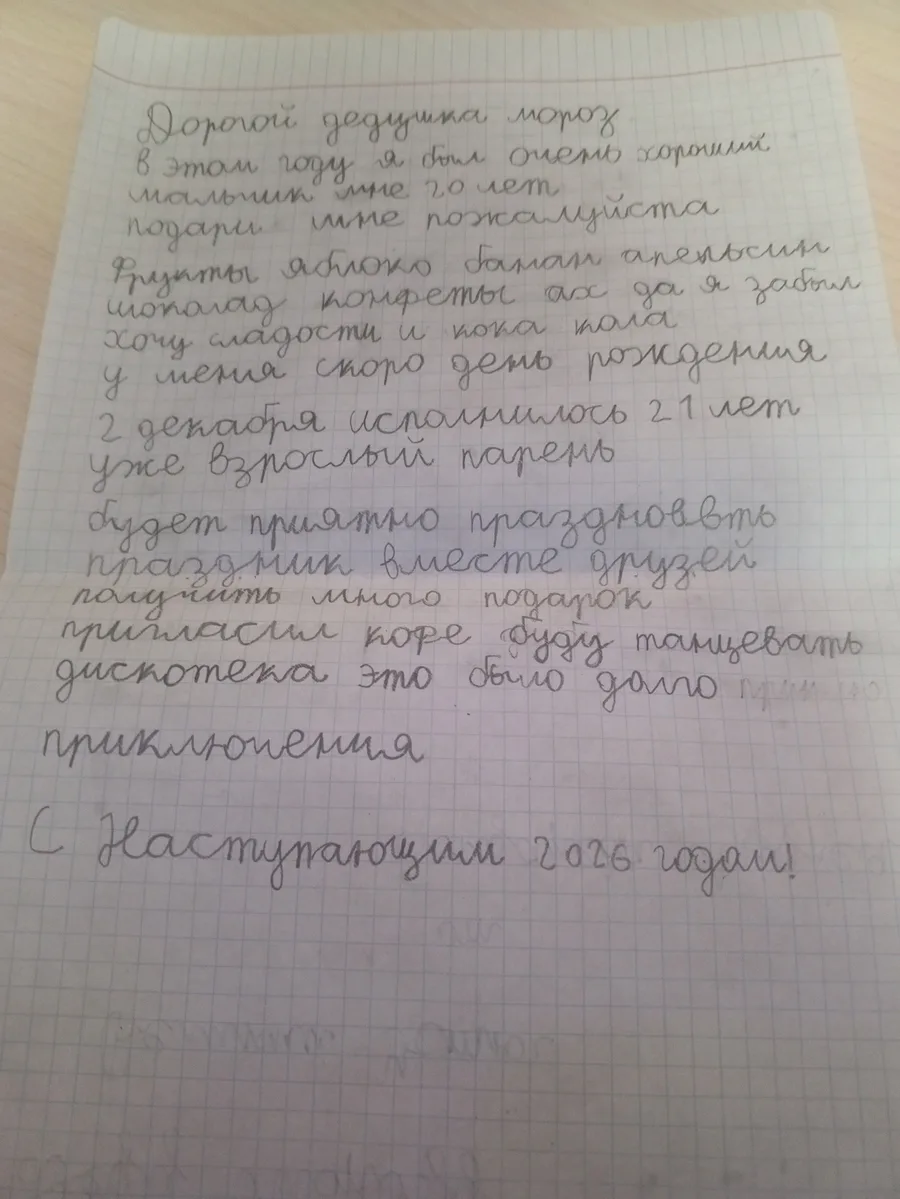 Дорогой дедушка мороз
в этом году я был очень хороший
мальчик мне 20 лет
подари мне пожалуйста
Фрукты яблоко банан апельсин
шоколад конфеты ах да я забыл
хочу сладости и кока кола
у меня скоро день рождения
2 декабря исполнилось 21 лет
уже взрослый парень
будет приятно праздновать
праздник вместе друзей
получить много подарок
пригласил кофе буду танцевать
дискотека это было долго
приключения
С Наступающим 2026 годом!